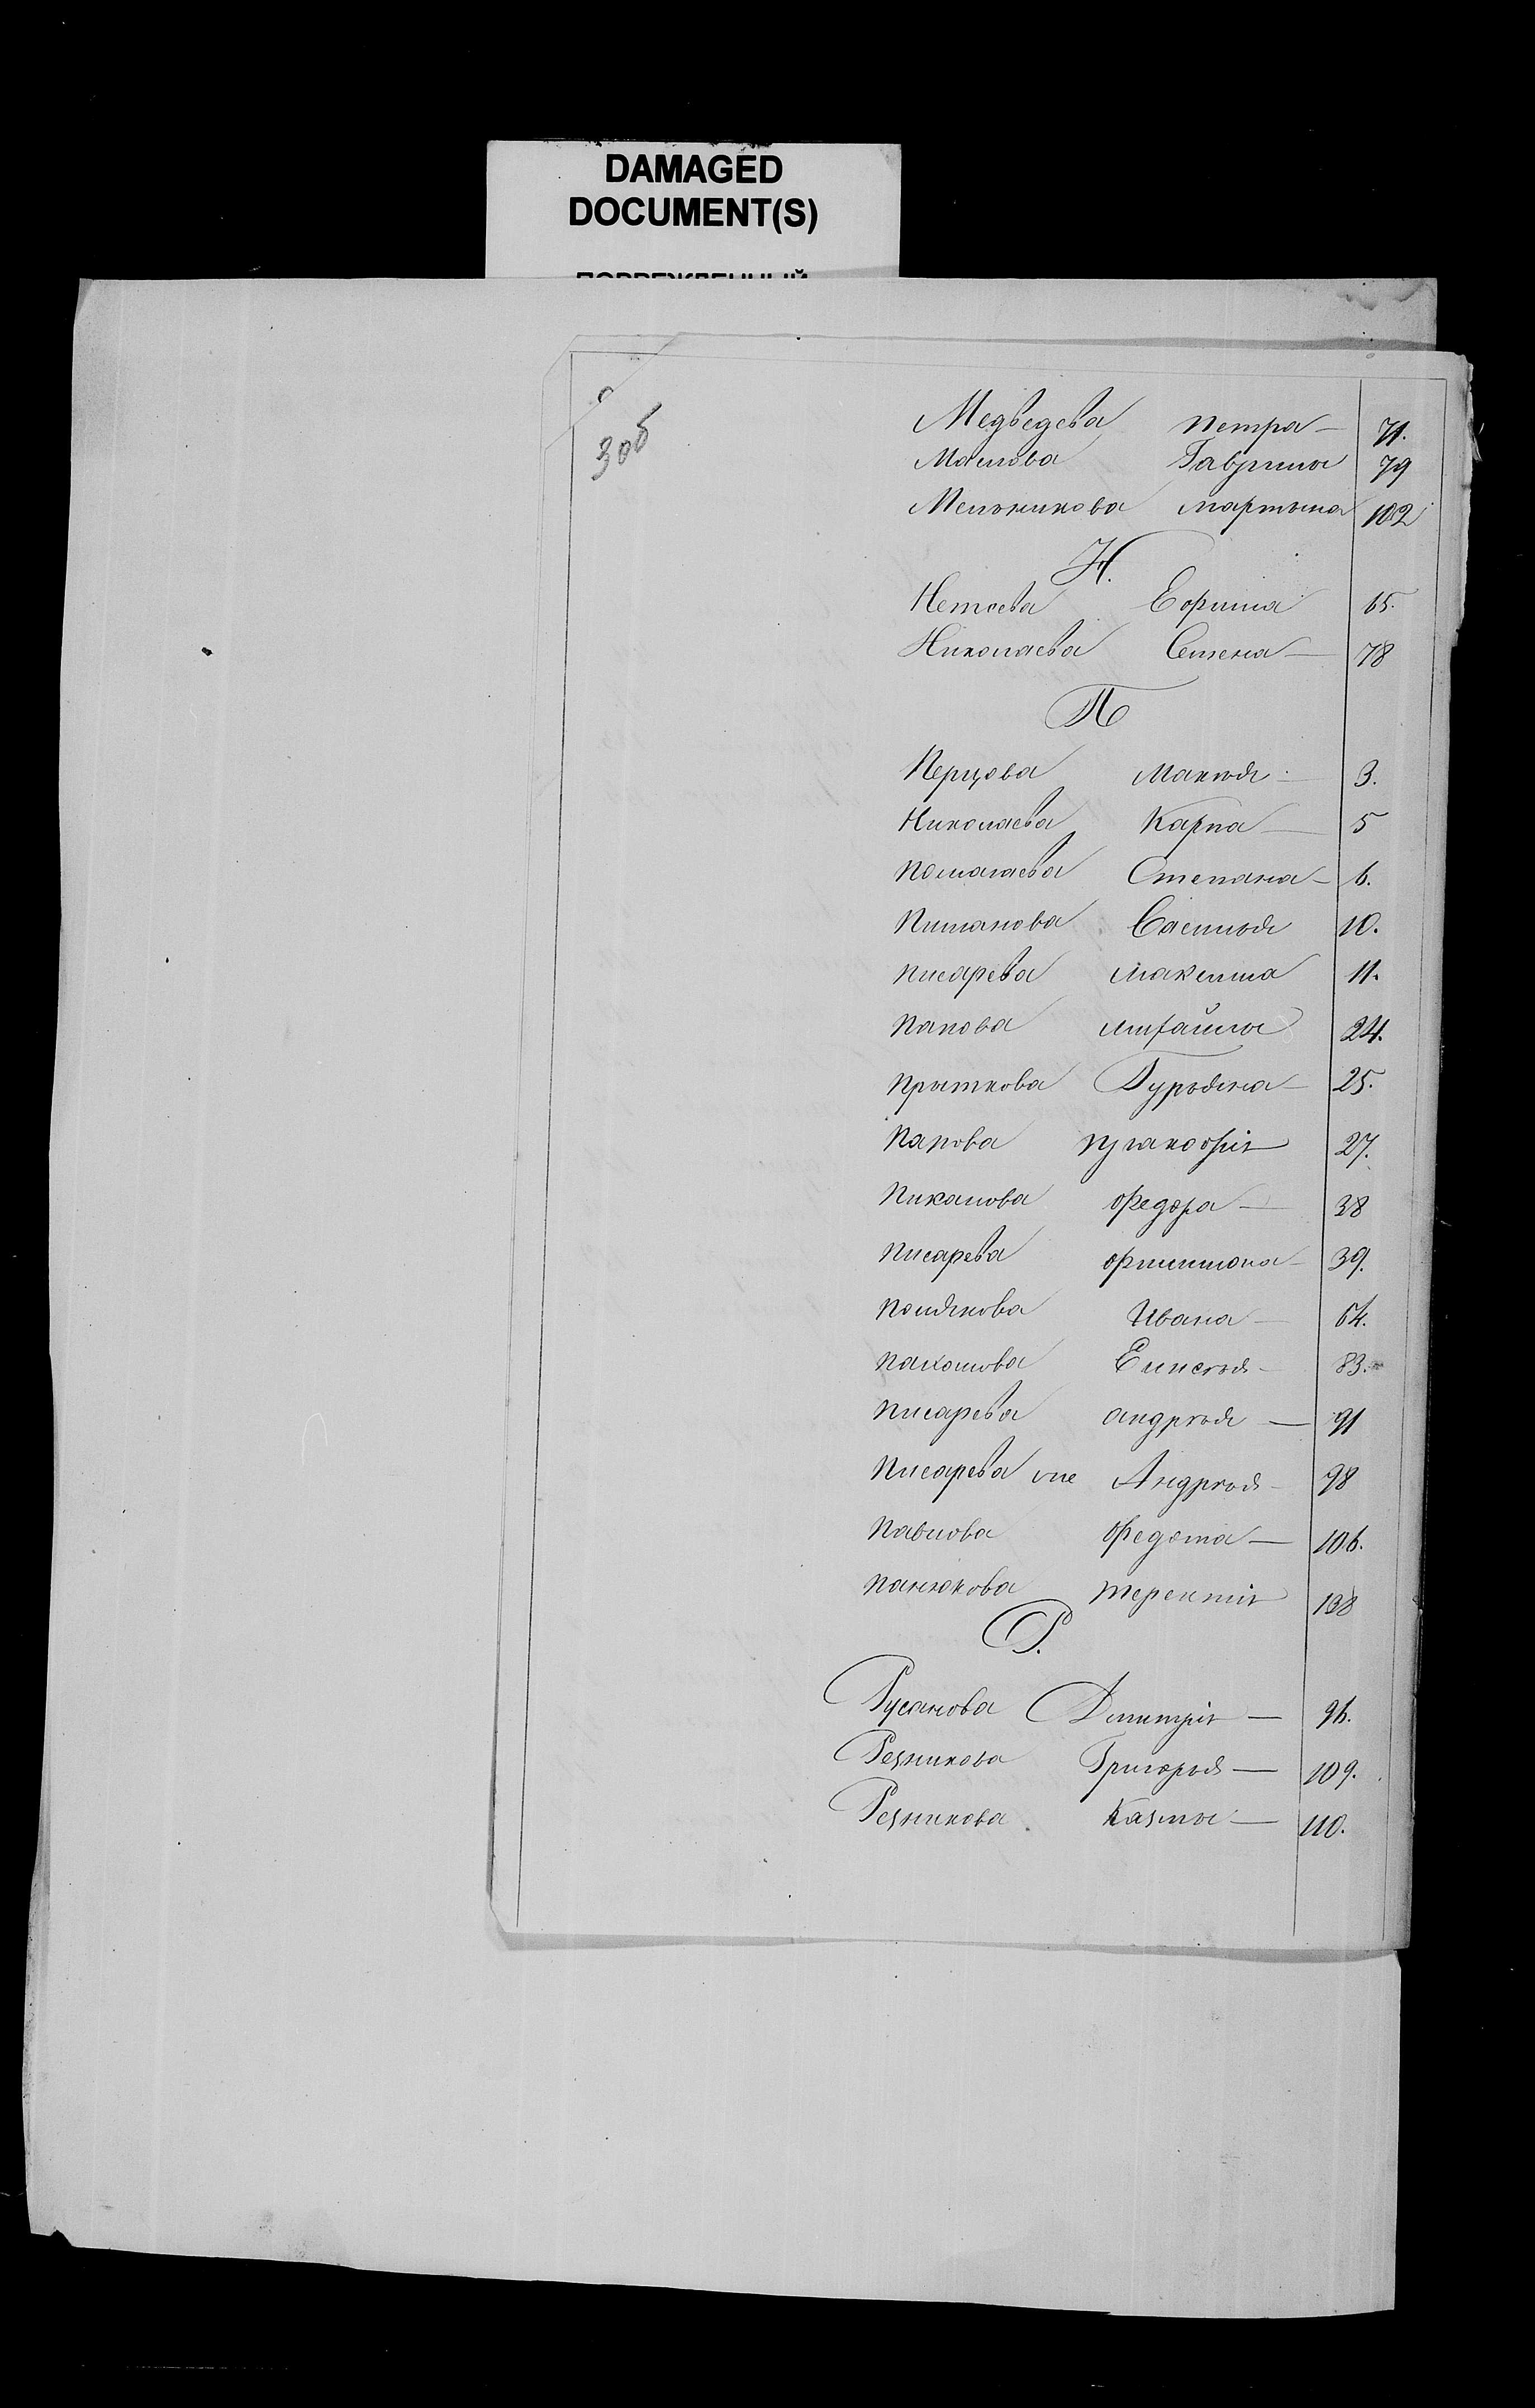 DAMAGED
DOCUMENT(S)
306
Медведева Петра — 71.
Маслова Гаврила 79
Мельникова Мартына 102
Н.
Нетесева Ефима 65.
Николаева Семена — 78
П
Перцова Макѣя — 3.
Николаева Карпа — 5
Помагаева Степана — 6.
Питанова 10.
Писарева Максима 11.
Папова михайла 24.
Прыткова Гурьяна — 25.
Папова 27.
Пикалова Федора — 38
Писарева филимона — 39.
Полякова Ивана — 64.
Пахомова Елисѣя — 83.
Писарева андрѣя — 91
Писарева Андрѣя — 98
Павлова Федота — 106.
Панюкова терентія 138
Р.
Русанова Дмитрія — 96.
Резникова Григорья — 109.
Резникова Казмы — 110.